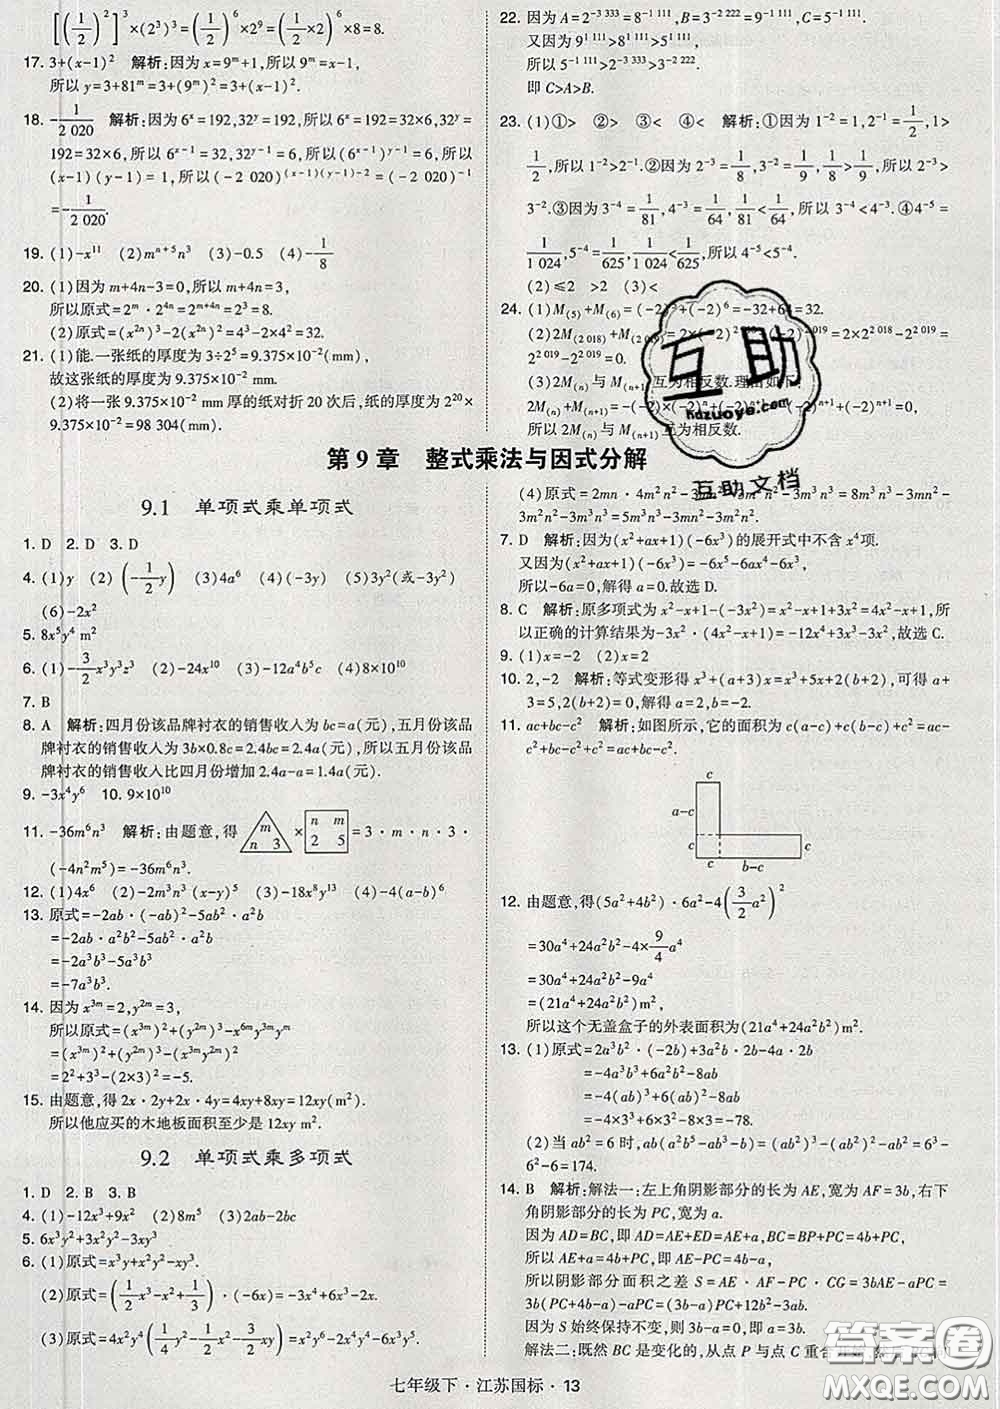 [(1/2)²]³×(2³)³=(1/2)⁶×2⁹=(1/2×2)⁶×8=8.
17. 3+(x-1)² 解析:因为x=9ᵐ+1,所以9ᵐ=x-1,
所以y=3+81ᵐ=3+(9ᵐ)²=3+(x-1)².
18. -1/2 020 解析:因为6ˣ=192,32ʸ=192,所以6ˣ=192=32×6,32ʸ=
192=32×6,所以6ˣ⁻¹=32,32ʸ⁻¹=6,所以(6ˣ⁻¹)ʸ⁻¹=6,所以
(x-1)(y-1)=1,所以(-2 020)^((x-1)(y-1)-2)=(-2 020)⁻¹
=-1/2 020.
19. (1)-x¹¹ (2)mⁿ⁺⁵n³ (3)-0.5 (4)-1/8
20. (1)因为m+4n-3=0,所以m+4n=3,
所以原式=2ᵐ·2⁴ⁿ=2ᵐ⁺⁴ⁿ=2³=8.
(2)原式=(x²ⁿ)³-2(x²ⁿ)²=4³-2×4²=32.
21. (1)能.一张纸的厚度为3÷2⁵=9.375×10⁻²(mm),
故这张纸的厚度为9.375×10⁻² mm.
(2)将一张9.375×10⁻² mm厚的纸对折20次后,纸的厚度为2²⁰×
9.375×10⁻²=98 304(mm).
22. 因为A=2⁻³ ³³³=8⁻¹ ¹¹¹,B=3⁻² ²²²=9⁻¹ ¹¹¹,C=5⁻¹ ¹¹¹.
又因为9¹ ¹¹¹>8¹ ¹¹¹>5¹ ¹¹¹,
所以5⁻¹ ¹¹¹>2⁻³ ³³³>3⁻² ²²².
即C>A>B.
23. (1)①> ②> ③< ④< 解析:①因为1⁻²=1,2⁻¹=1/2,1>
1/2,所以1⁻²>2⁻¹.②因为2⁻³=1/8,3⁻²=1/9,1/8>1/9,所以2⁻³>
3⁻².③因为3⁻⁴=1/81,4⁻³=1/64,1/81<1/64,所以3⁻⁴<4⁻³.④4⁻⁵=
1/1 024,5⁻⁴=1/625,1/1 024<1/625,所以4⁻⁵<5⁻⁴.
(2)≤2 >2 (3)<
24. (1)M₍₅₎+M₍₆₎=(-2)⁵+(-2)⁶=-32+64=32.
(2)2M₍₂ ₀₁₈₎+M₍₂ ₀₁₉₎=2×(-2)² ⁰¹⁸+(-2)² ⁰¹⁹=2×2² ⁰¹⁸-2² ⁰¹⁹=
2² ⁰¹⁹-2² ⁰¹⁹=0.
(3)2M₍ₙ₎与M₍ₙ₊₁₎互为相反数.理由如下:
2M₍ₙ₎+M₍ₙ₊₁₎=-(-2)×(-2)ⁿ+(-2)ⁿ⁺¹=-(-2)ⁿ⁺¹+(-2)ⁿ⁺¹=
0,所以2M₍ₙ₎与M₍ₙ₊₁₎互为相反数.
互助
hdzuoye.com
互助文档
第9章 整式乘法与因式分解
9.1 单项式乘单项式
1. D 2. D 3. D
4. (1)y (2)(-1/2y) (3)4a⁶ (4)(-3y) (5)3y²(或-3y²)
(6)-2x²
5. 8x⁵y⁴ m²
6. (1)-3/2x³y³z³ (2)-24x¹⁰ (3)-12a⁴b⁵c (4)8×10¹⁰
7. B
8. A 解析:四月份该品牌衬衣的销售收入为bc=a(元),五月份该品
牌衬衣的销售收入为3b×0.8c=2.4bc=2.4a(元),所以五月份该品
牌衬衣的销售收入比四月份增加2.4a-a=1.4a(元).
9. -3x⁴y⁶ 10. 9×10¹⁰
11. -36m⁶n³ 解析:由题意,得 m n 3 × n m 2 5 =3·m·n·3·
(-4n²m⁵)=-36m⁶n³.
12. (1)4x⁶ (2)-2m³n²(x-y)⁵ (3)-18x⁸y¹³ (4)-4(a-b)⁶
13. 原式=-2ab·(-ab)²-5ab²·a²b
=-2ab·a²b²-5ab²·a²b
=-2a³b³-5a³b³
=-7a³b³.
14. 因为x³ᵐ=2,y²ᵐ=3,
所以原式=(x³ᵐ)²+(y²ᵐ)³-x⁶ᵐy³ᵐyᵐ
=(x³ᵐ)²+(y²ᵐ)³-(x³ᵐy²ᵐ)²
=2²+3³-(2×3)²=-5.
15. 由题意,得2x·2y+2x·4y=4xy+8xy=12xy(m²).
所以他应买的木地板面积至少是12xy m².
9.2 单项式乘多项式
1. D 2. B 3. B
4. (1)-12x³+9x² (2)8m⁵ (3)2ab-2bc
5. 6x³y²+3x²y²-3xy³
6. (1)原式=x³y+x²y²-xy³.
(2)原式=(1/2x³-x²+1/3)·(-6x)=-3x⁴+6x³-2x.
(3)原式=4x²y⁴(1/4y²-1/2x²-3/2xy)=x²y⁶-2x⁴y⁴-6x³y⁵.
(4)原式=2mn·4m²n²-3m²n·mn²-3mn²=8m³n³-3mn²-
3m³n³=5m³n³-3mn²-3m²n².
7. D 解析:因为(x²+ax+1)(-6x³)的展开式中不含x⁴项.
又因为(x²+ax+1)(-6x³)=-6x⁵-6ax⁴-6x³,
所以-6a=0,解得a=0.故选D.
8. C 解析:原多项式为x²-x+1-(-3x²)=x²-x+1+3x²=4x²-x+1,所
以正确的计算结果为-3x²·(4x²-x+1)=-12x⁴+3x³-3x²,故选C.
9. (1)x=-2 (2)x=2
10. 2,-2 解析:等式变形得x³+(a+3)x=x³+5x+2(b+2),可得a+
3=5,2(b+2)=0,解得a=2,b=-2.
11. ac+bc-c² 解析:如图所示,它的面积为c(a-c)+c(b-c)+c²=ac-
c²+bc-c²+c²=ac+bc-c².
c
a-c
c c
c b-c
12. 由题意,得(5a²+4b²)·6a²-4(3/2a²)²
=30a⁴+24a²b²-4×9/4a⁴
=30a⁴+24a²b²-9a⁴
=(21a⁴+24a²b²)m².
所以这个无盖盒子的外表面积为(21a⁴+24a²b²)m².
13. (1)原式=2a³b²·(-2b)+3a·2b-4a·2b
=-4a³b³+6a²b²-8ab
=-4(ab)³+6(ab)²-8ab
=-4×3³+6×3²-8×3=-78.
(2)当ab²=6时,ab(a²b⁵-ab³-b)=(ab²)³-(ab²)²-ab²=6³-
6²-6=174.
14. B 解析:解法一:左上角阴影部分的长为AE,宽为AF=3b,右下
角阴影部分的长为PC,宽为a.
因为AD=BC,即AD=AE+ED=AE+a,BC=BP+PC=4b+PC,
所以AE+a=4b+PC,即AE-PC=4b-a,
所以阴影部分面积之差S=AE·AF-PC·CG=3bAE-aPC=
3b(PC+4b-a)-aPC=(3b-a)PC+12b²-3ab.
因为S始终保持不变,则3b-a=0,即a=3b.
解法二:既然BC是变化的,从点P与点C重合开始
七年级下·江苏国标·13
答案圈
MXQE.COM